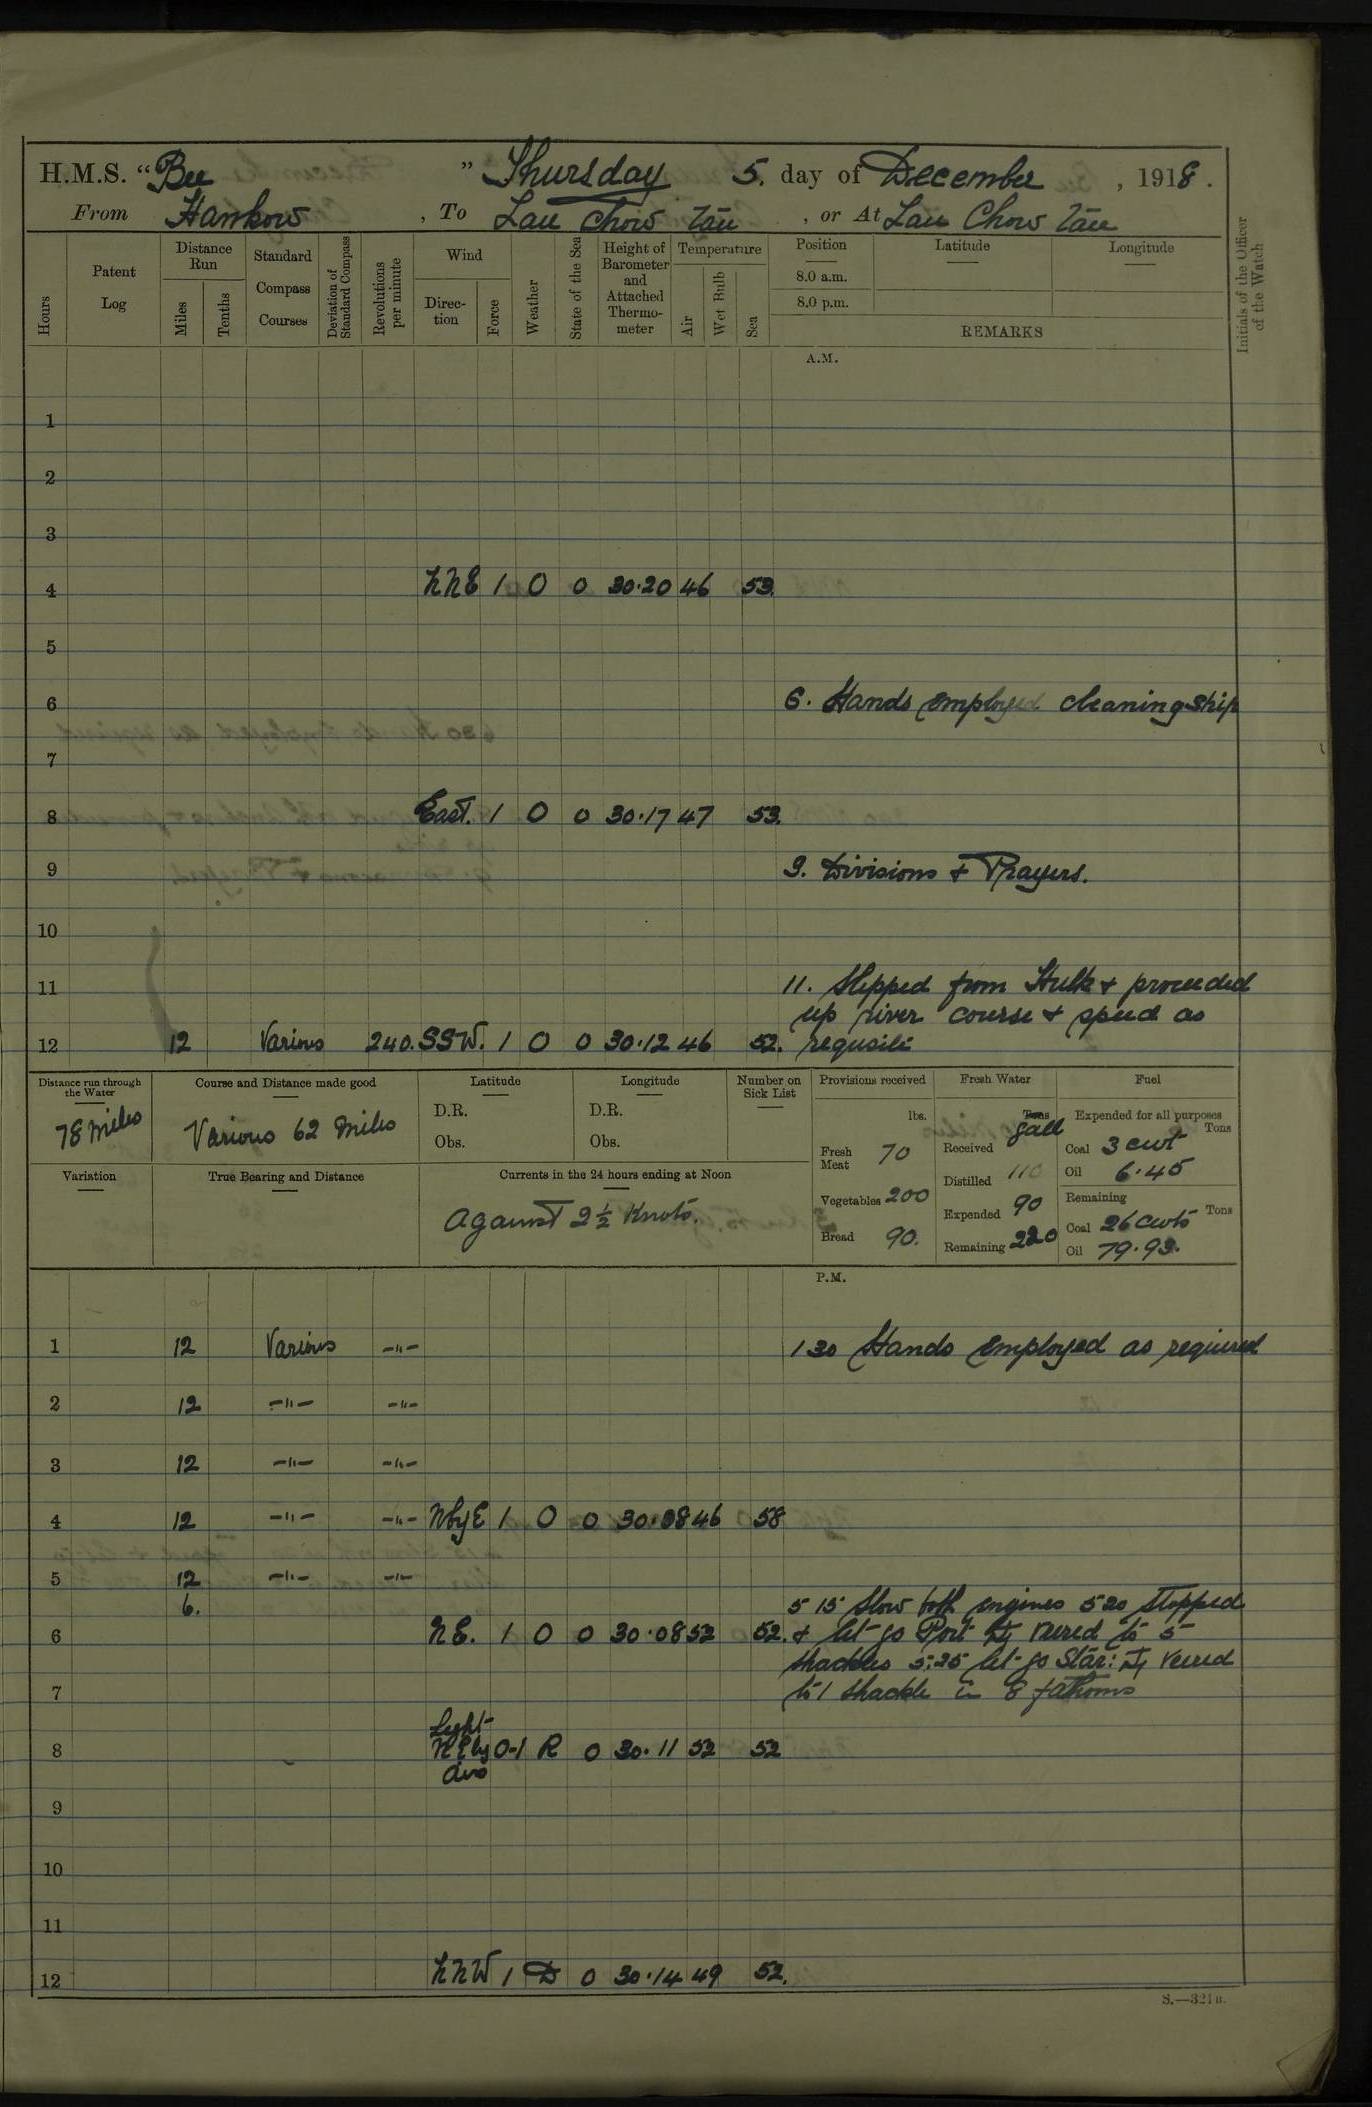 H.M.S. “Bee ” Thursday 5. day of December, 1918.
From Hankow, To Lau Chow Tau, or At Lau Chow Tau
Hours Patent Log Distance Run Miles Tenths Standard Compass Courses Deviation of Standard Compass Revolutions per minute Wind Direc-tion Force Weather State of the Sea Height of Barometer and Attached Thermo-meter Temperature Air Wet Bulb Sea Position 8.0 a.m. 8.0 p.m. Latitude Longitude REMARKS Initials of the Officer of the Watch
A.M.
1
2
3
4 NNE 1 O 0 30.20 46 53.
5
6 6. Hands employed cleaning ship
7
8 East. 1 O 0 30.17 47 53.
9 9. Divisions & Prayers.
10
11 11. Slipped from Hulk & proceeded
up river course & speed as
12 12 Various 240. SSW. 1 O 0 30.12 46 52. requisite
Distance run through the Water 78 miles
Course and Distance made good Various 62 miles
Latitude D.R. Obs.
Longitude D.R. Obs.
Number on Sick List
Variation
True Bearing and Distance
Currents in the 24 hours ending at Noon
Against 2½ Knots.
Provisions received lbs.
Fresh Meat 70
Vegetables 200
Bread 90.
Fresh Water Tons Gall
Received
Distilled 110
Expended 90
Remaining 220
Fuel
Expended for all purposes Tons
Coal 3 cwt
Oil 6.45
Remaining Tons
Coal 26 cwts
Oil 79.93.
P.M.
1 12 Various -"- 1 30 Hands employed as required
2 12 -"- -"-
3 12 -"- -"-
4 12 -"- -"- NbyE 1 O 0 30.08 46 58
5 12 -"- -"-
6. 5 15 Slow both engines 5 20 stopped
6 NE. 1 O 0 30.08 52 52. & let go Port veered to 5
shackles 5.25 let go Star: veered
7 to 1 shackle in 8 fathoms
Light
8 NE by 0-1 R 0 30.11 52 52
airs
9
10
11
12 NNW 1 D 0 30.14 49 52.
S.—321B.